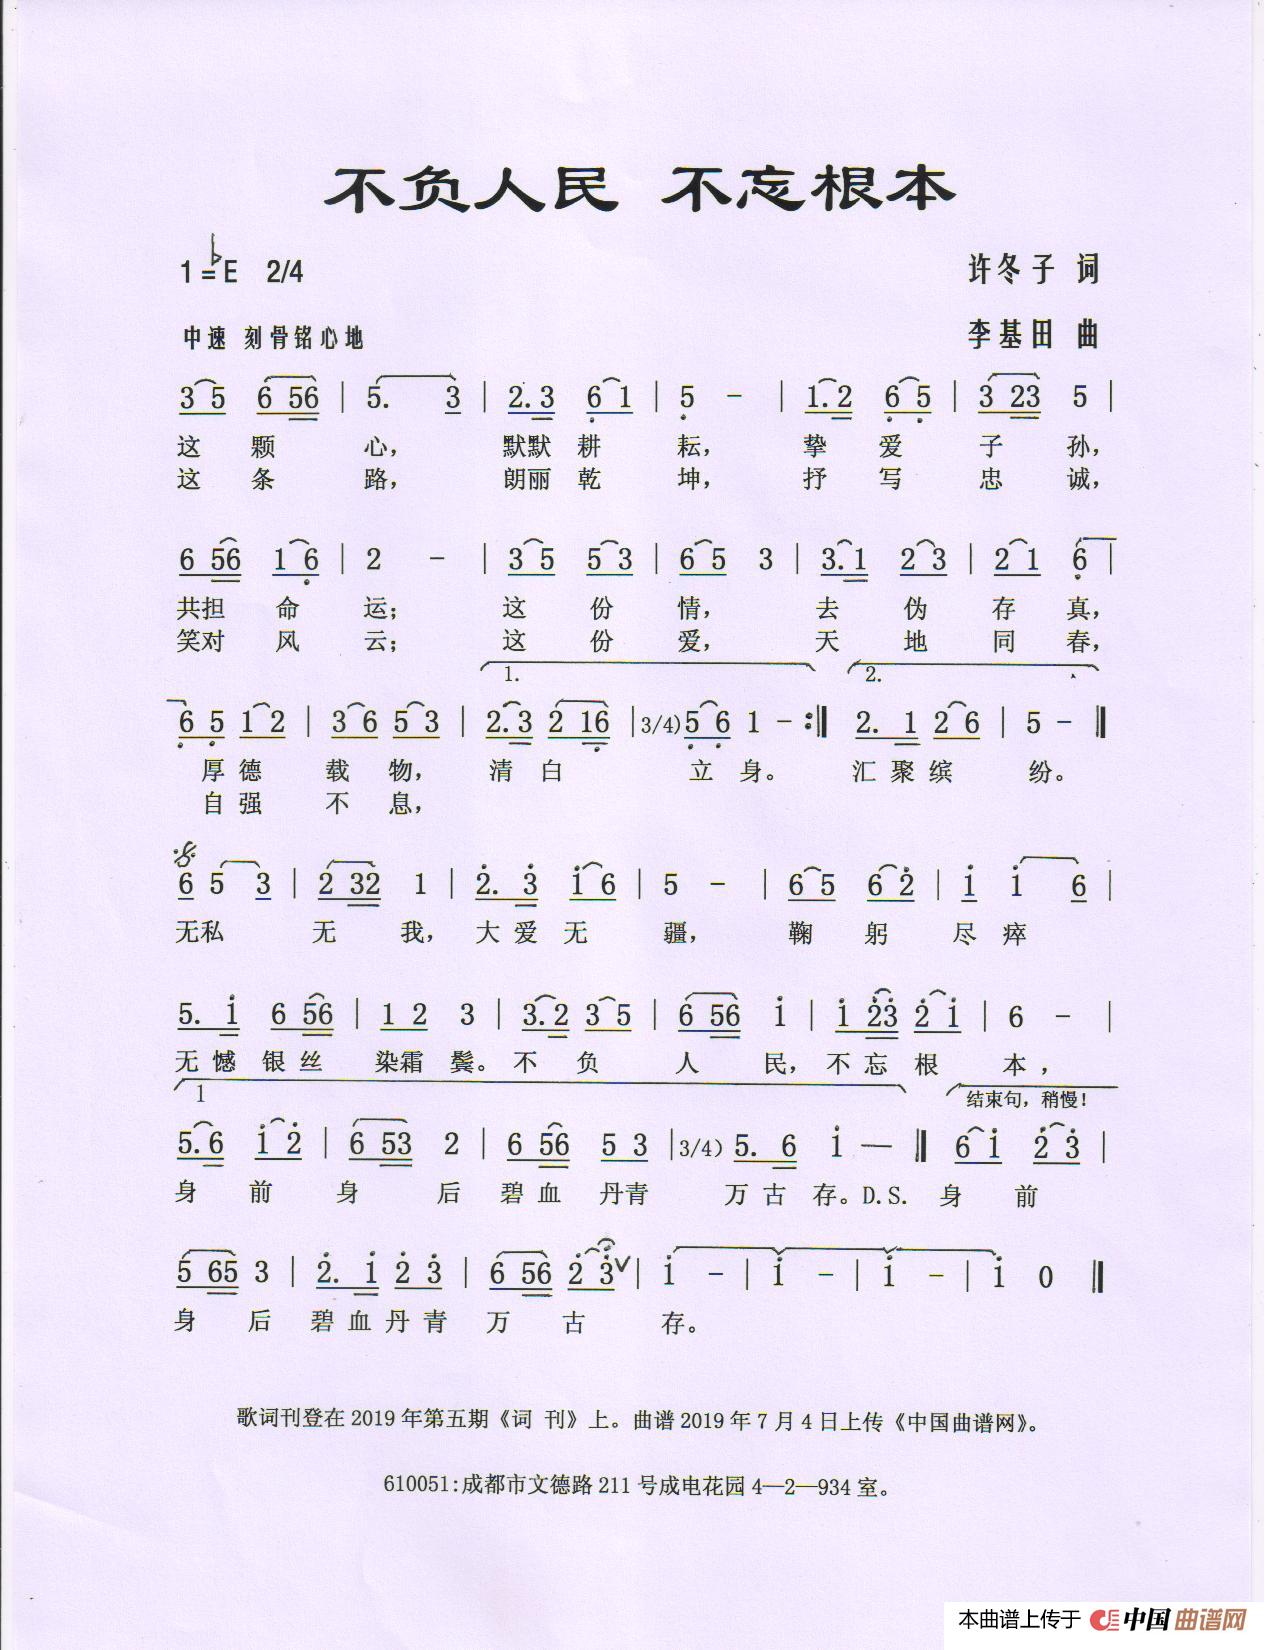 不负人民 不忘根本
1=♭E 2/4
许冬子 词
中速 刻骨铭心地
李基田 曲
3 5 6 56 | 5. 3 | 2.3 6 1 | 5 - | 1.2 6 5 | 3 23 5 |
这 颗 心, 默默 耕 耘, 挚 爱 子 孙,
这 条 路, 朗丽 乾 坤, 抒 写 忠 诚,
6 56 1 6 | 2 - | 3 5 5 3 | 6 5 3 | 3.1 2 3 | 2 1 6 |
共担 命 运; 这 份 情, 去 伪 存 真,
笑对 风 云; 这 份 爱, 天 地 同 春,
1. 2.
6 5 1 2 | 3 6 5 3 | 2.3 2 16 | 3/4) 5 6 1 - :‖ 2. 1 2 6 | 5 - ‖
厚 德 载 物, 清 白 立 身。 汇 聚 缤 纷。
自 强 不 息,
6 5 3 | 2 32 1 | 2. 3 1 6 | 5 - | 6 5 6 2 | 1 1 6 |
无私 无 我, 大 爱 无 疆, 鞠 躬 尽 瘁
5. 1 6 56 | 1 2 3 | 3.2 3 5 | 6 56 1 | 1 23 2 1 | 6 - |
无 憾 银 丝 染霜 鬓。 不 负 人 民, 不 忘 根 本,
1 结束句, 稍慢!
5.6 1 2 | 6 53 2 | 6 56 5 3 | 3/4) 5. 6 1 — ‖ 6 1 2 3 |
身 前 身 后 碧 血 丹青 万 古 存。D.S. 身 前
5 65 3 | 2. 1 2 3 | 6 56 2 3 V | 1 - | 1 - | 1 - | 1 0 ‖
身 后 碧 血 丹 青 万 古 存。
歌词刊登在 2019 年第五期《词 刊》上。曲谱 2019 年 7 月 4 日上传《中国曲谱网》。
610051:成都市文德路 211 号成电花园 4—2—934 室。
本曲谱上传于 中国曲谱网